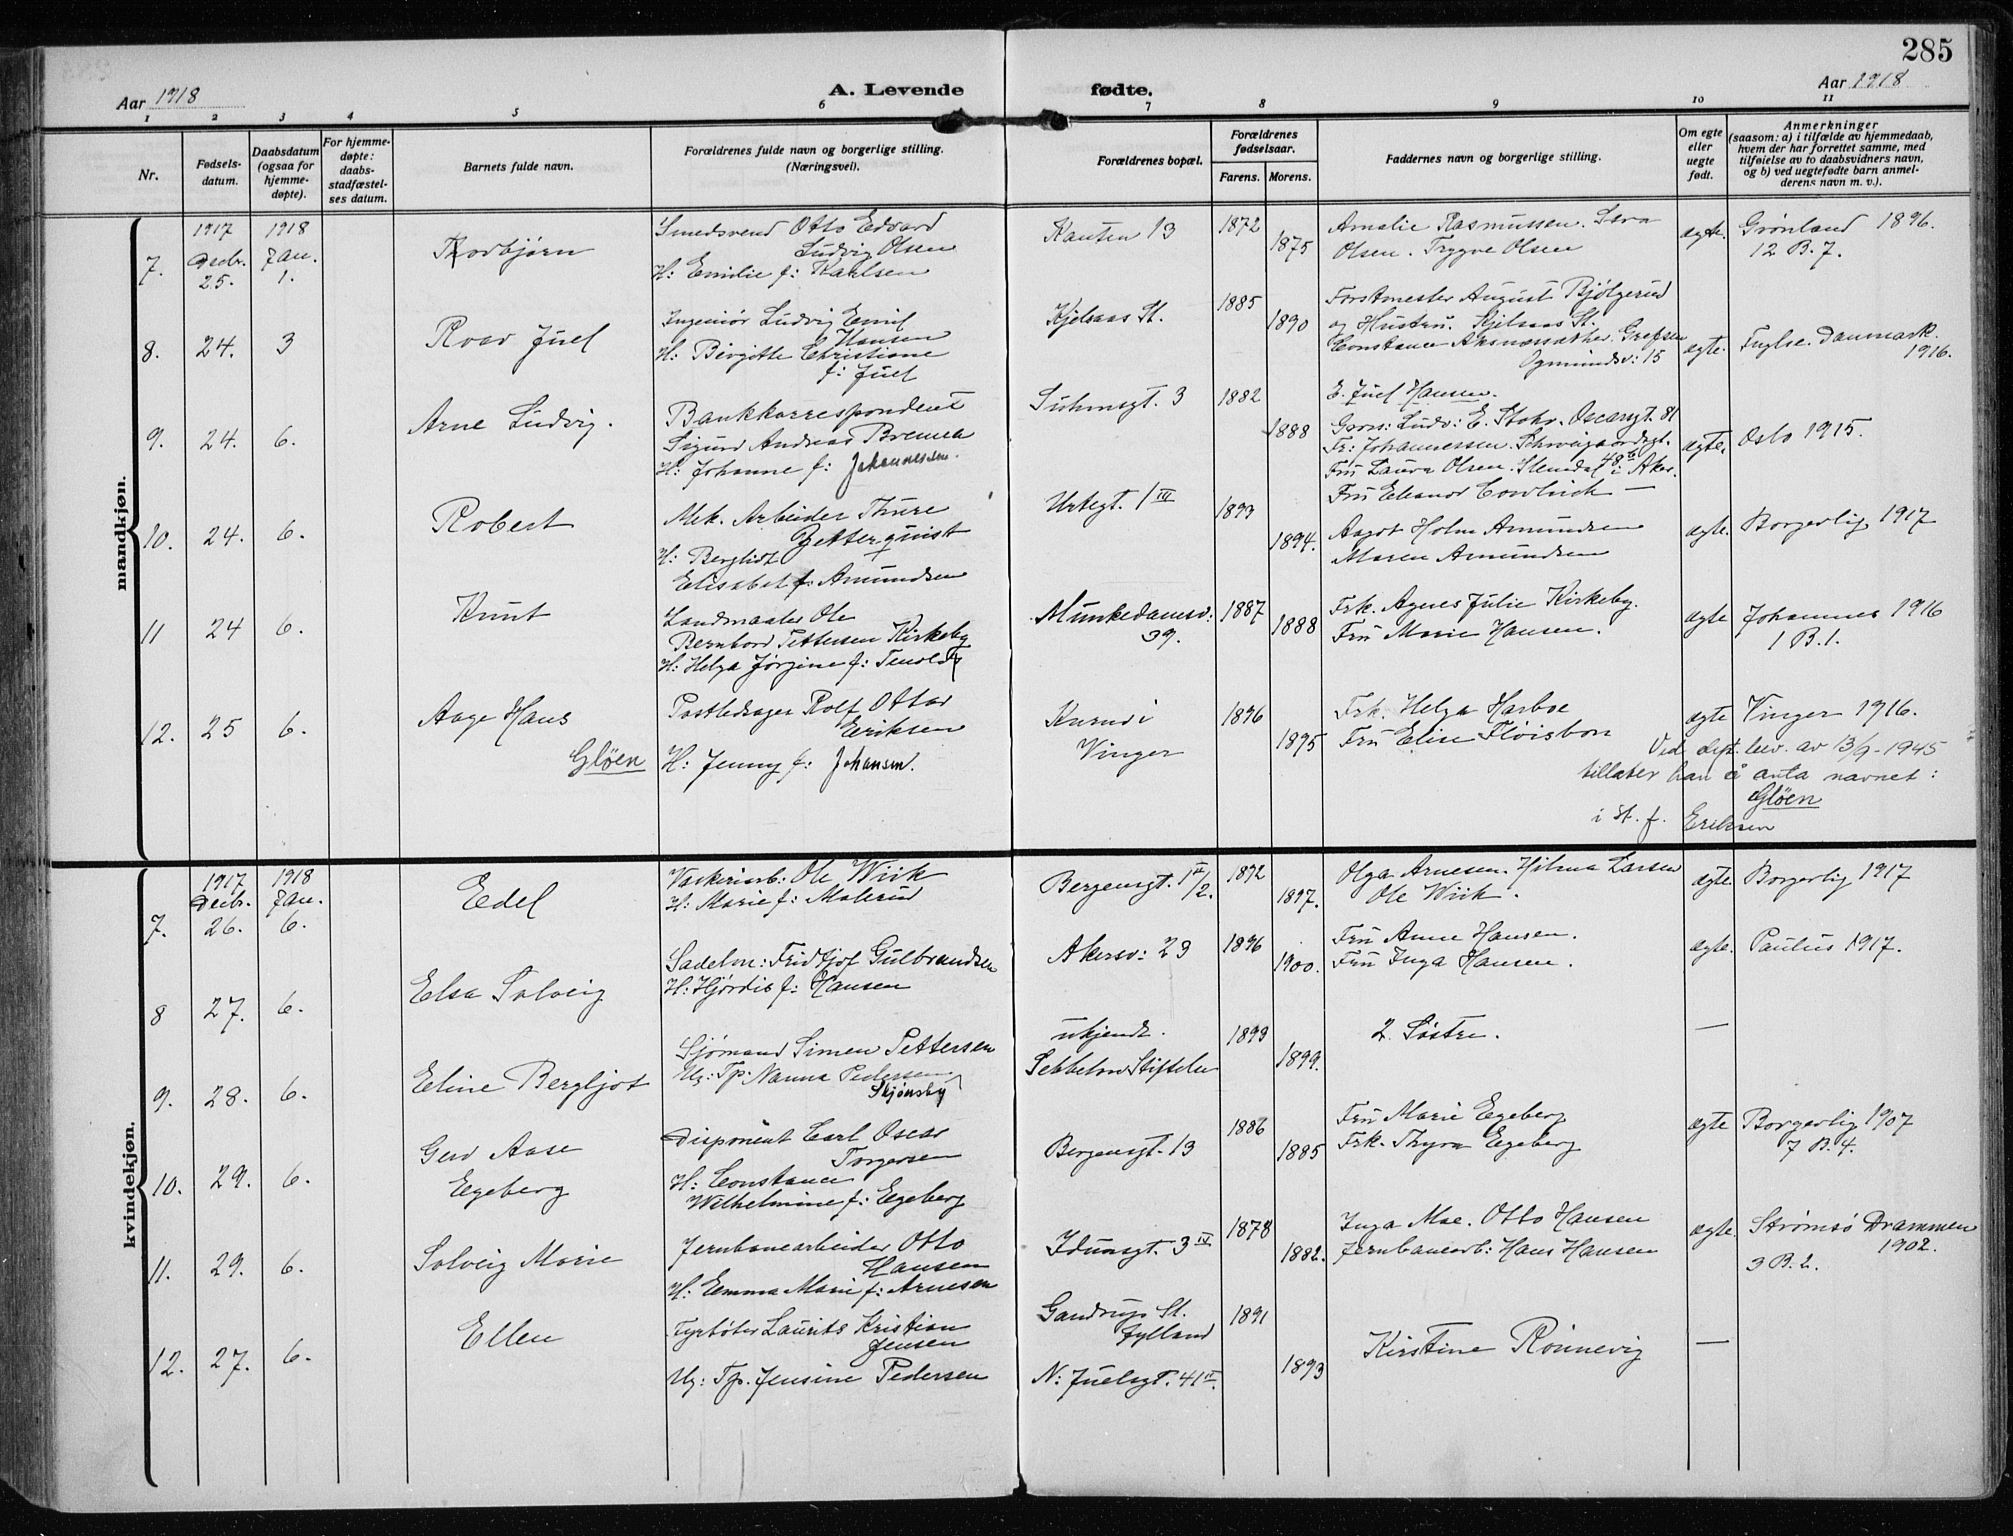 285
Aar 1918 A. Levende fødte. Aar 1918
1 2 3 4 5 6 7 8 9 10 11
Nr.
Fødsels-
datum.
Daabsdatum
(ogsaa for
hjemme-
døpte).
For hjemme-
døpte:
daabs-
stadfæstel-
ses datum.
Barnets fulde navn.
Forældrenes fulde navn og borgerlige stilling.
(Næringsvei).
Forældrenes bopæl.
Forældrenes
fødselsaar.
Farens. Morens.
Faddernes navn og borgerlige stilling.
Om egte
eller
uegte
født.
Anmerkninger
(saasom: a) i tilfælde av hjemmedaab,
hvem der har forrettet samme, med
tilføielse av to daabsvidners navn,
og b) ved uegtefødte barn anmel-
derens navn m. v.).
mandkjøn.
1917 1918
7. Decbr. 25. Jan. 1. Thorbjørn
Smedsvend Otto Edvard
Ludvig Olsen
H: Emilie f: Karlsen
Kanten 13 1872 1875
Amalie Rasmussen. Sara
Olsen. Trygve Olsen
egte. Grønland 1896.
12 B. 7.
8. 24. 3 Roar Juel
Ingeniør Ludvig Emil
Hansen
H: Birgitte Christiane
f: Juel
Kjelsaas St. 1885 1890
Forstmester August Bjølgerud
og Hustru. Kjelsaas St.
Constance Grefsen
Ogmundsv: 15
E. Juel Hansen.
egte. Fuglse. Danmark.
1916.
9. 24. 6. Arne Ludvig.
Bankkorrespondent
Sigurd Andreas Bremer
H: Johanne f: Johannessen.
Suhmsgt. 3 1882 1888
Gros: Ludv: E. Stohr. Oscarsgt. 81
Fr: Johannessen. Schweigaardsgt.
48 b
Fru Laura Olsen. Stendal i Aker.
Fru Eleanor Cowlrick —
egte. Oslo 1915.
10. 24. 6. Robert
Mek. Arbeider Thure
Zetterquist
H: Bergliot
Elisabet f: Amundsen
Urtegt. 1 III 1893 1894.
Aagot Holm Amundsen
Maren Amundsen
egte. Borgerlig 1917
11 24 6. Knut
Landmaaler Ole
Bernhard Pettersen Kirkeby
H: Helga Jørgine f: Tenold
Munkedamsv:
39. 1887 1888
Frk. Agnes Julie Kirkeby.
Fru Marie Hansen.
egte Johannes 1916
1 B. 1.
12. 25 6. Aage Hans
Gløen
Postbedrager Rolf Ottar
Eriksen
H: Jenny f: Johansen.
Kurud i
Vinger 1896 1895
Frk. Helga Harboe
Fru Elise Fløisbon
egte Vinger 1916.
Ved dept. bev. av 13/9-1945
tillates han å anta navnet:
Gløen
i st. f. Eriksen
kvindekjøn.
1917 1918
7. Decbr. 26. Jan. 6. Edel
Vaskeriarb: Ole Wiik
H: Marie f: Malerud
Bergensgt. 1 II/2. 1892 1897.
Olga Arnesen. Hilma Larsen
Ole Wiik.
egte. Borgerlig 1917
8 27. 6. Elsa Solveig
Sadelm: Fridtjof Gulbrandsen
H: Hjørdis f: Hansen
Akersv: 23 1896 1900.
Fru Anna Hansen.
Fru Inga Hansen.
egte. Paulus 1917.
9. 28. 6. Eline Bergljot
Sjømand Simen Pettersen
Ug: Tp: Nanna Pedersen
Skjønsby
ukjendt.
Sebbelow Stiftelse 1893 1899.
2. Søstre. —
10. 29. 6. Gerd Aase
Egeberg
Disponent Carl Oscar
Torgersen
H: Constance
Wilhelmine f: Egeberg
Bergensgt. 13 1886 1885
Fru Marie Egeberg
Frk. Thyra Egeberg
egte Borgerlig 1907
7 B. 4.
11. 29. 6. Solveig Marie
Jernbanearbeider Otto
Hansen
H: Emma Marie f: Arnesen
Idunsgt. 3 IV 1878 1882.
Inga Moe. Otto Hansen
Jernbanearb: Hans Hansen
egte. Strømsø Drammen
1902.
3 B. 2.
12. 27. 6. Ellen
Fyrbøter Laurits Kristian
Jensen
Ug: Tp. Jensine Pedersen
Gandrup St.
Jylland
N: Juelsgt. 41 II. 1891 1893
Kirstine Rønnevig —